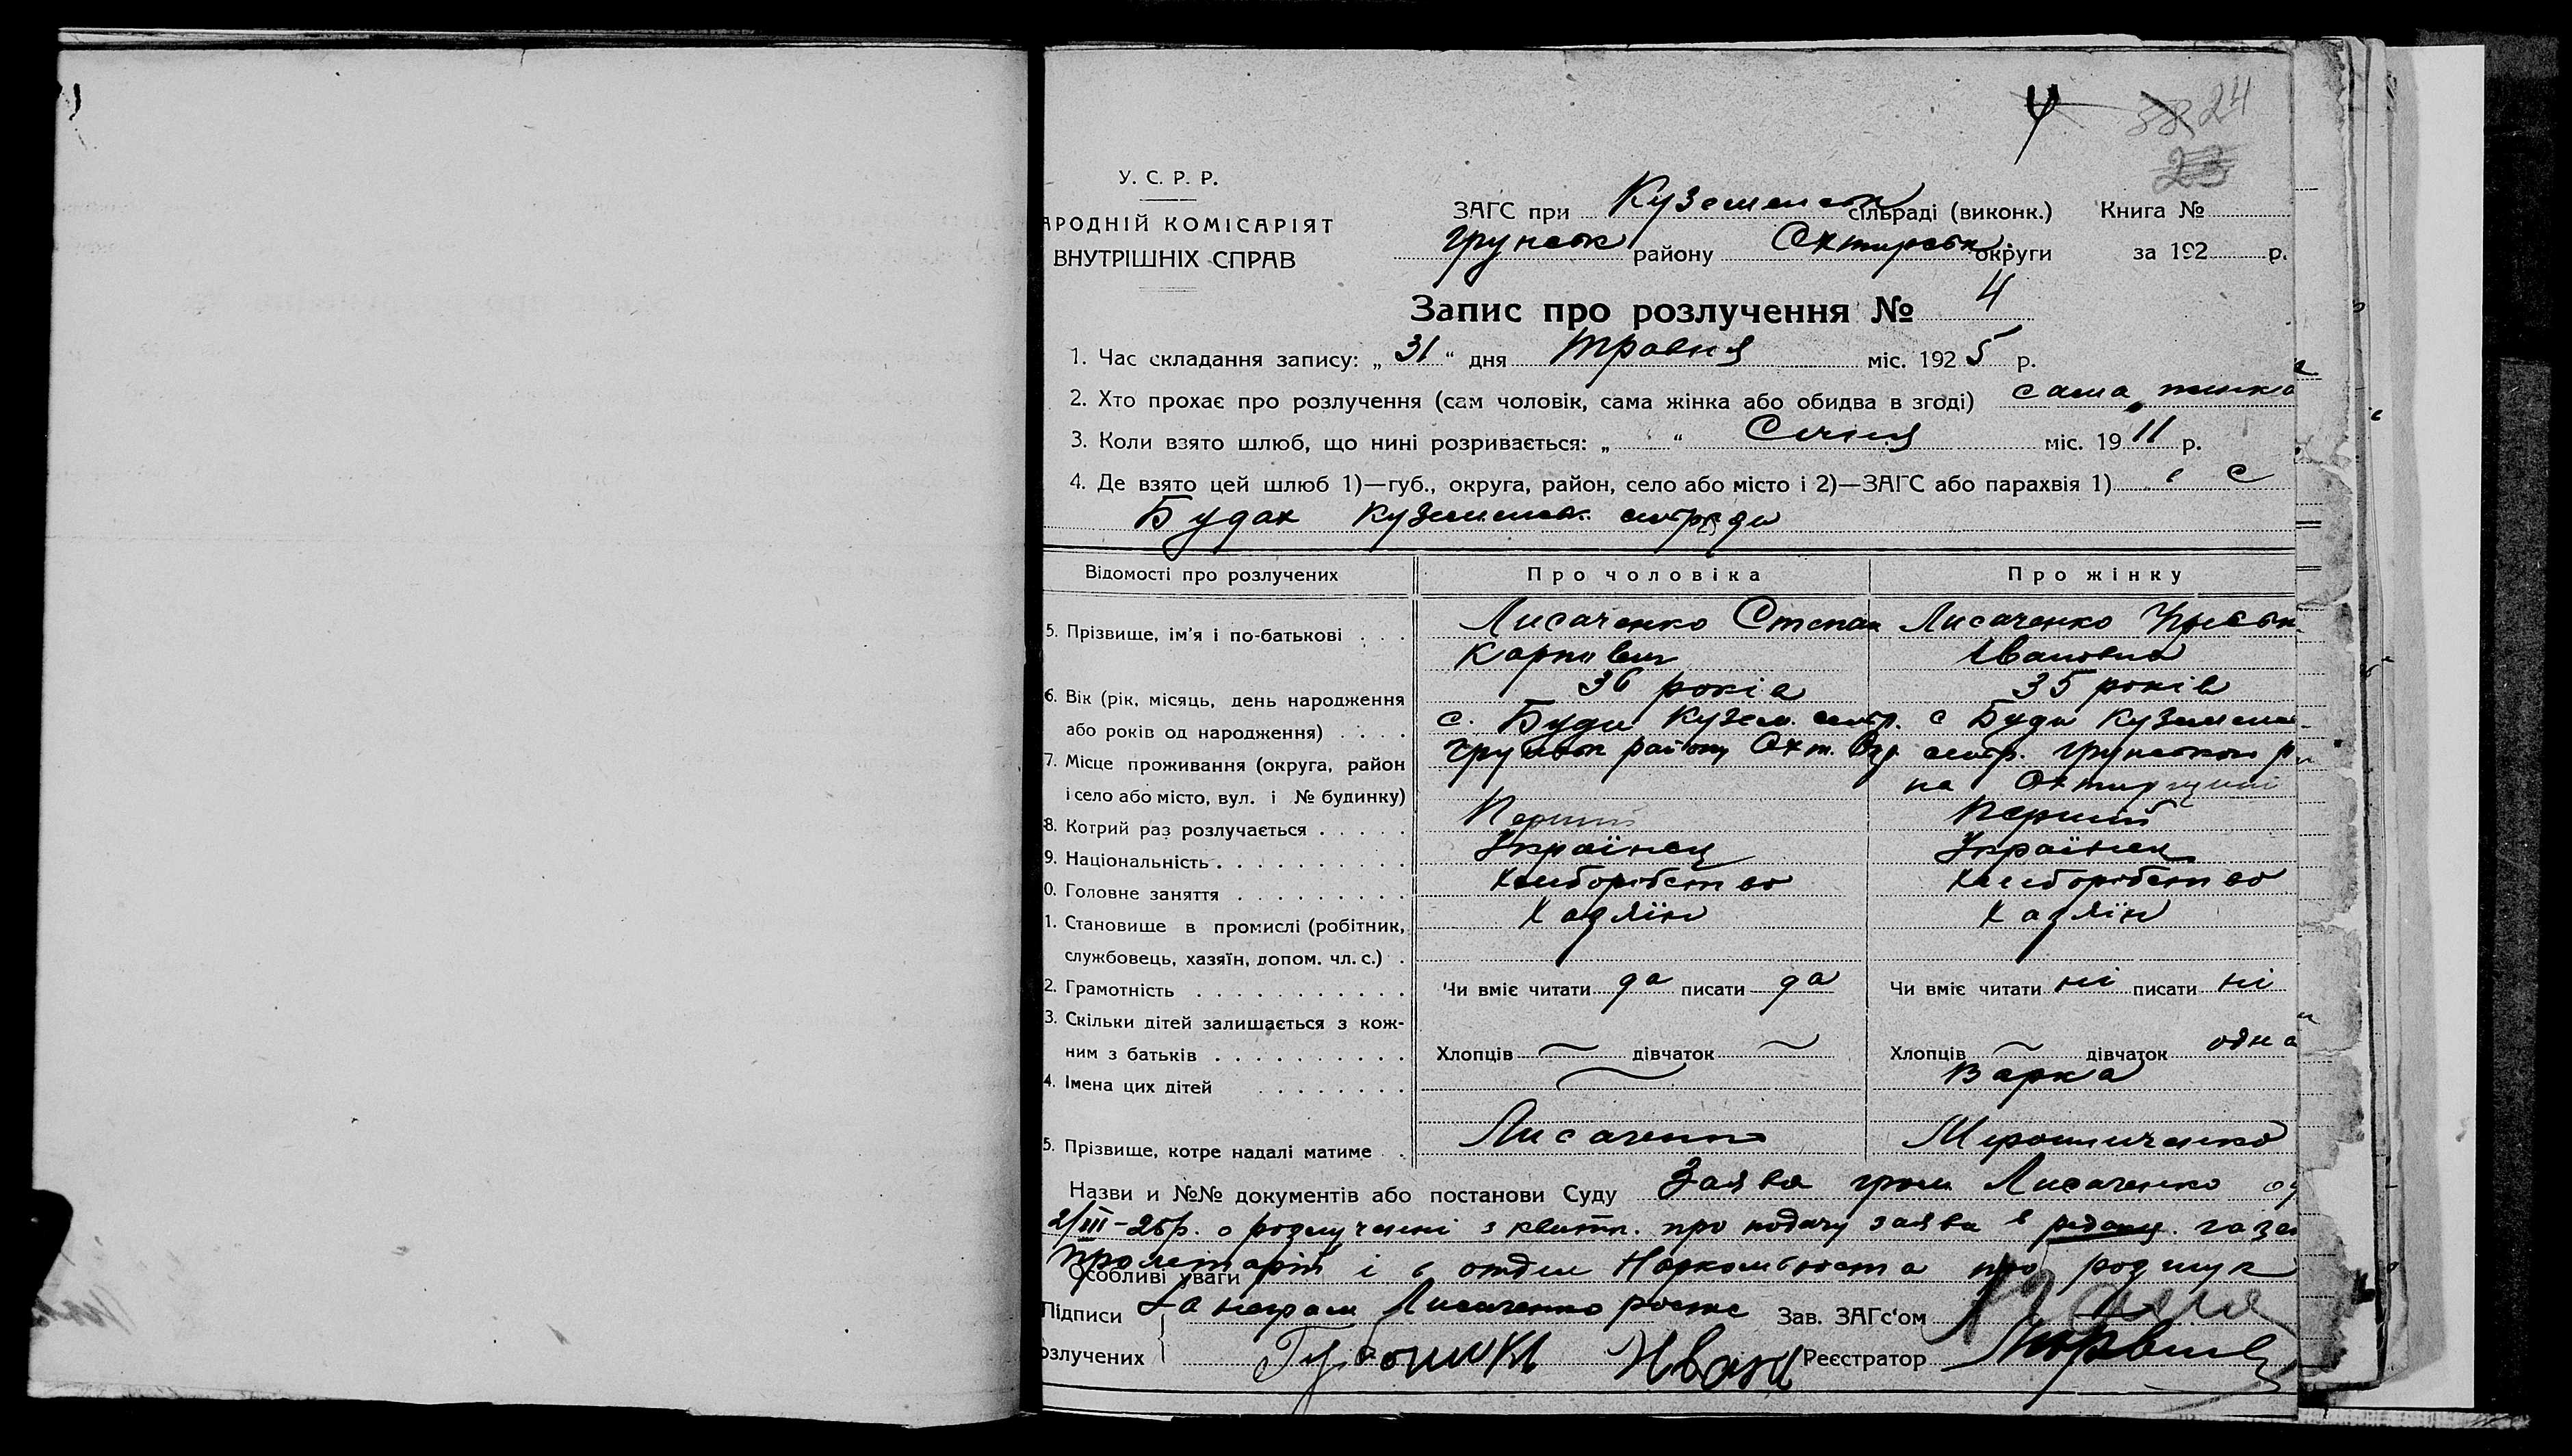 24
38
23
У. С. Р. Р.
АРОДНІЙ КОМІСАРІЯТ
ВНУТРІШНІХ СПРАВ
ЗАГС при Куземенськ сільраді (виконк.) Книга №
Грунськ району Охтирськ округи за 192 р.
Запис про розлучення № 4
1. Час складання запису: „31“ дня Травня міс. 1925 р.
2. Хто прохає про розлучення (сам чоловік, сама жінка або обидва в згоді) сама жинка
3. Коли взято шлюб, що нині розривається: „ “ Січня міс. 1911 р.
4. Де взято цей шлюб 1)—губ., округа, район, село або місто і 2)—ЗАГС або парахвія 1) с
Будах Куземенськ
Відомості про розлучених Про чоловіка Про жінку
5. Прізвище, ім'я і по-батькові Лисаченко Степан Лисаченко
Карпович Івановна
6. Вік (рік, місяць, день народження 36 років 35 років
або років од народження) с. Буди Кузем. сільр. с Буди Куземен
7. Місце проживання (округа, район Грунськ району Охт. Окр. сільр. Грунського р
і село або місто, вул. і № будинку) на Охтирщині
8. Котрий раз розлучається Перший Перший
9. Національність Українец Українец
0. Головне заняття Хлиборобство Хлиборобство
1. Становище в промислі (робітник, Хазяїн Хазяїн
службовець, хазяїн, допом. чл. с.)
2. Грамотність Чи вміє читати да писати да Чи вміє читати ні писати ні
3. Скільки дітей залишається з кож-
ним з батьків Хлопців — дівчаток — Хлопців — дівчаток одна
4. Імена цих дітей — Варка
5. Прізвище, котре надалі матиме Лисаченко Мирошниченко
Назви и №№ документів або постанови Суду Заява гром Лисаченко
2/III-25р. о розлученні з квитп. про подачу заяви в редакц. газе
Пролетарій і в отдел Наркомюста про розшук
Особливі уваги
Підписи За неграм Лисаченко роспис Зав. ЗАГс'ом
озлучених Іван Реєстратор